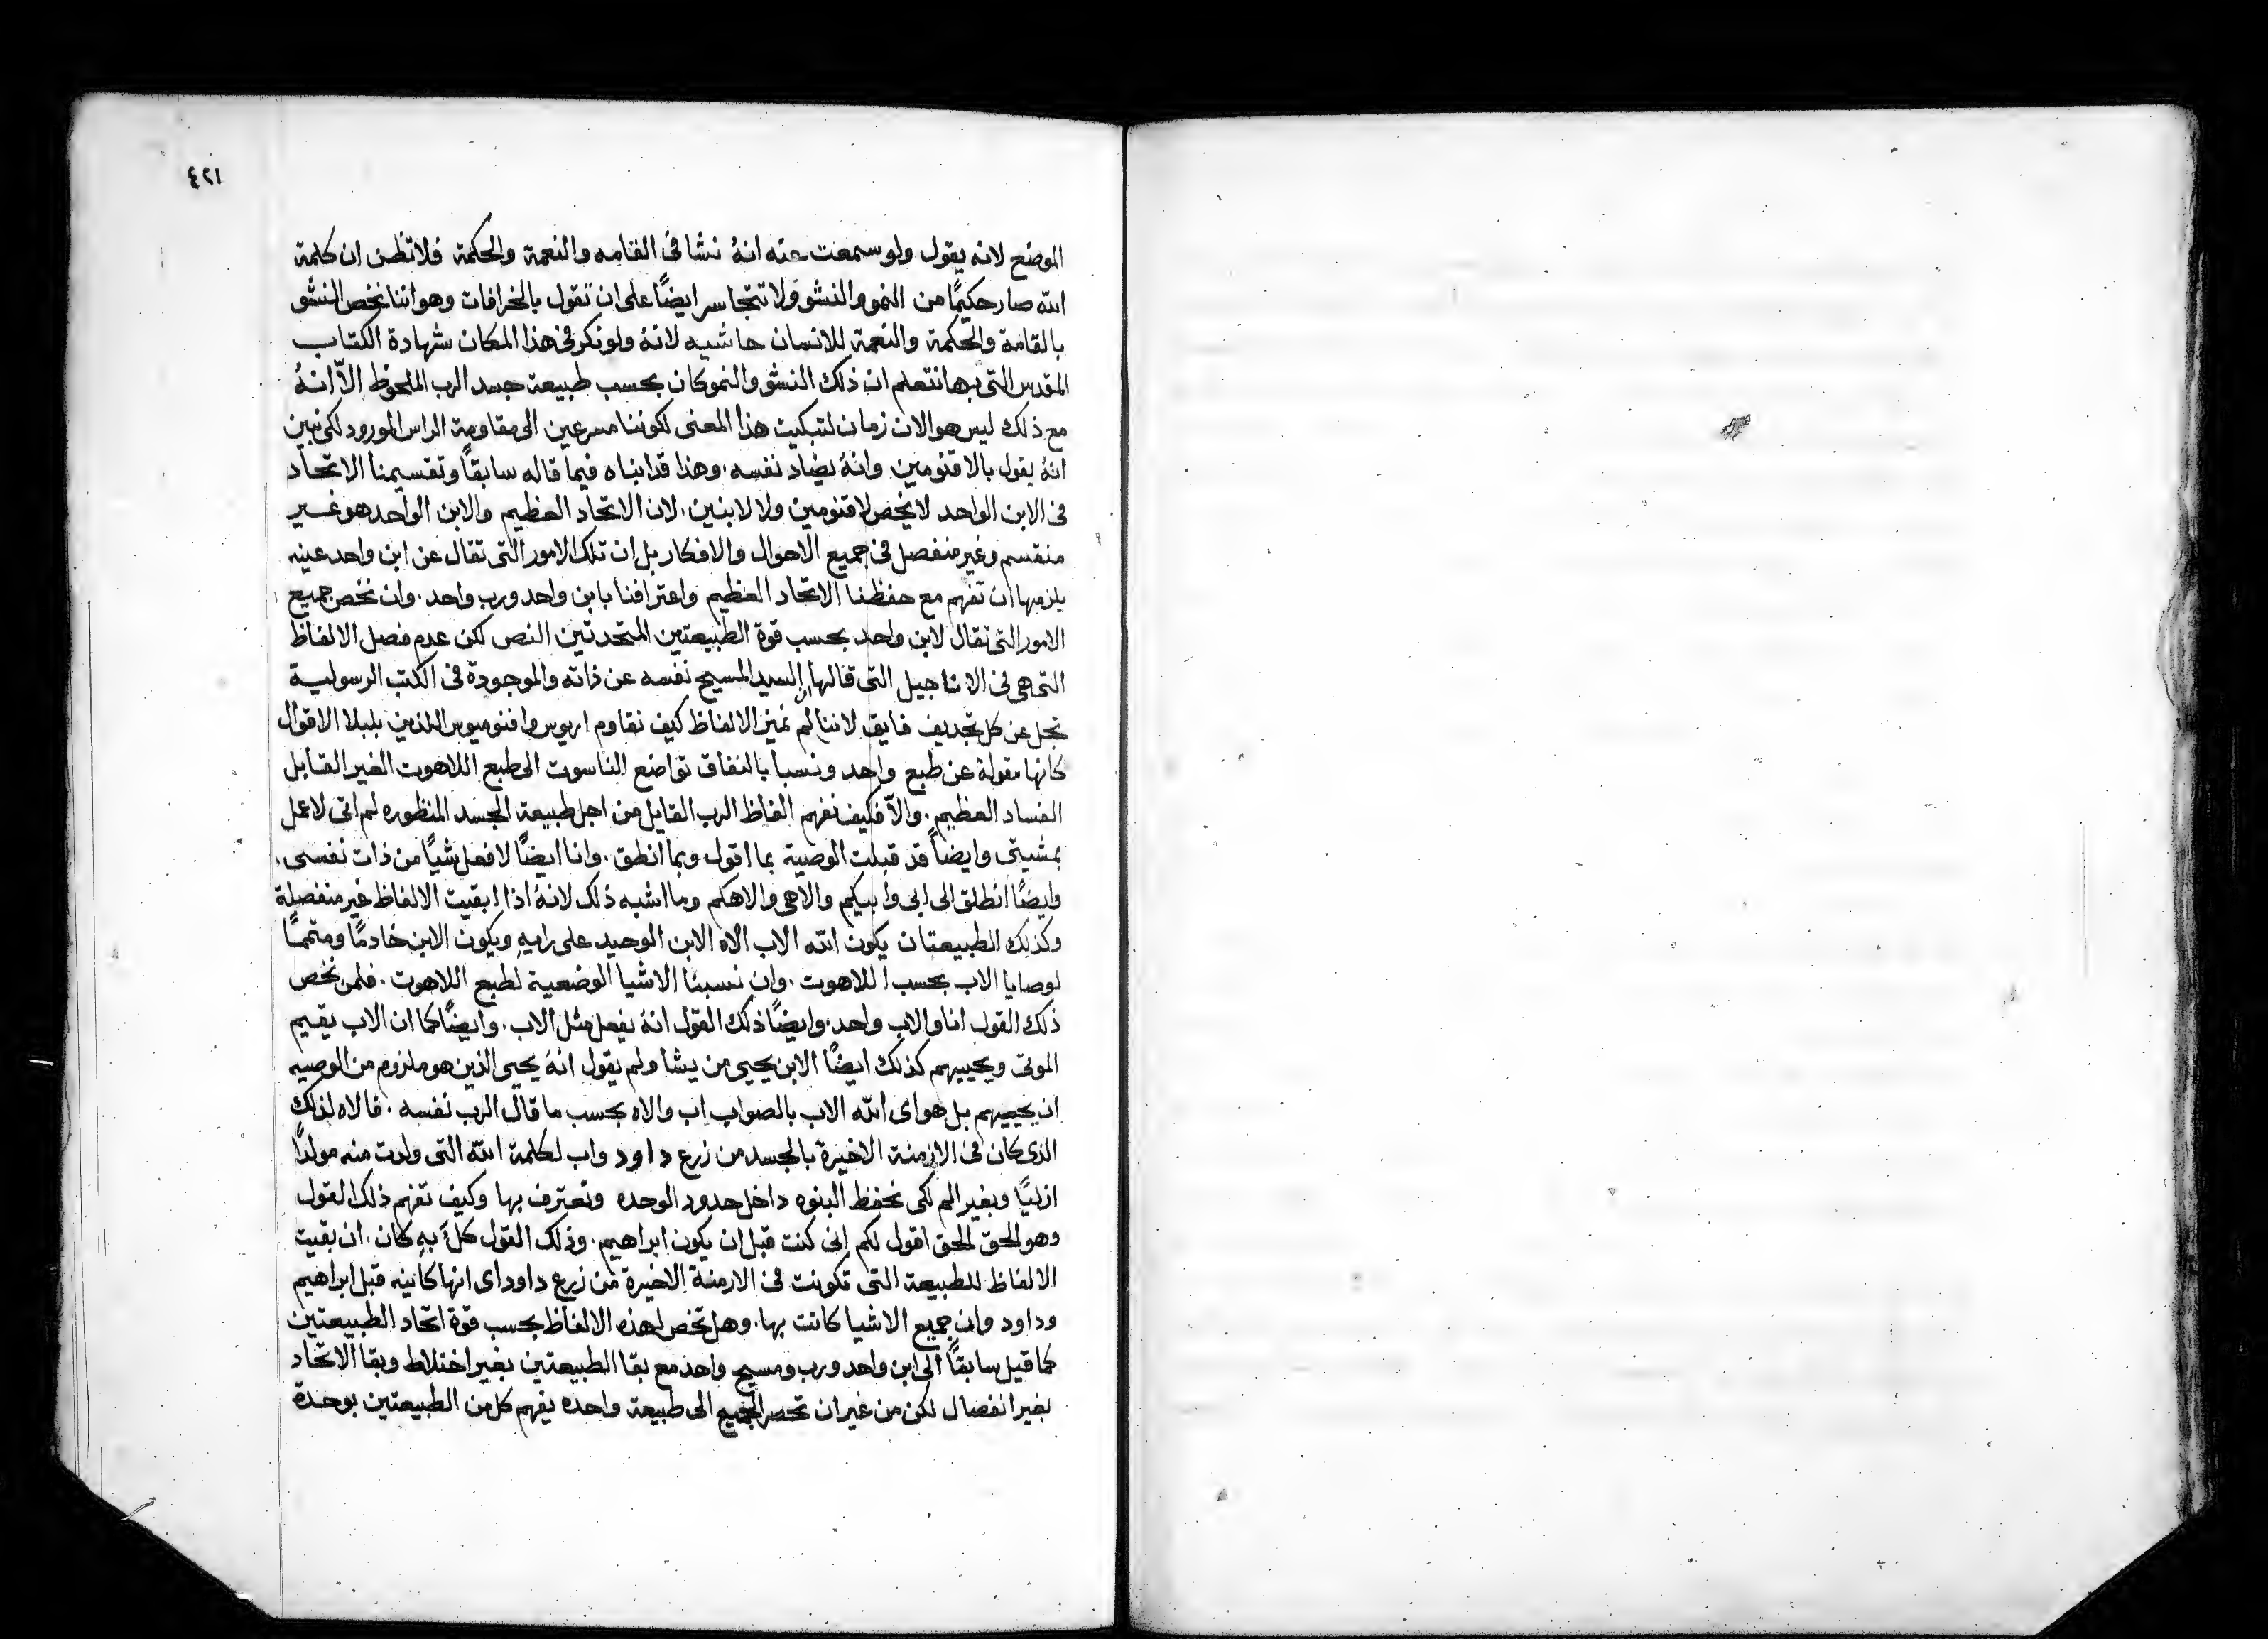 ٤٢١
الموضع لانه يقول ولو سمعت عنه انهُ نشا فى القامه والنعمة والحكمة فلا تظن ان كلمة
الله صار حكيمًا من النمو والنشو ولا تتجاسر ايضًا على ان تقول بالخرافات وهو اننا نخص النشو
بالقامة والحكمة والنعمة للانسان حاشيه لانهُ ولو نكر فى هذا المكان شهادة الكتاب
المقدس التى بها نتعلم ان ذلك النشو والنمو كان بحسب طبيعة جسد الرب الملحوظ الاّ انهُ
مع ذلك ليس هو الان زمان لتبكيت هذا المعنى لكوننا مسرعين الى مقاومة الراس المورود لكى نبين
انهُ يقول بالاقنومين وانهُ يضاد نفسه. وهذا قد ابناه فيما قاله سابقًا وتقسيمنا الاتحاد
فى الابن الواحد لا يخص لاقنومين ولا لابنين. لان الاتحاد العظيم والابن الواحد هو غير
منقسم وغير منفصل فى جميع الاحوال والافكار بل ان تلك الامور التى تقال عن ابن واحد عينه
يلزمها ان تفهم مع حفظنا الاتحاد العظيم واعترافنا بابن واحد ورب واحد. وان نخص جميع
الامور التى تقال لابن واحد بحسب قوة الطبيعتين المتحدتين النص لكن عدم فصل الالفاظ
التى هى فى الاناجيل التى قالها السيد المسيح نفسه عن ذاته والموجودة فى الكتب الرسولية
تجل عن كل تجديف فايق لاننا ان لم نميز الالفاظ كيف نقاوم اريوس وافنوميوس اللذين بلبلا الاقوال
كانها مقولة عن طبع واحد ونسبا بالنفاق تواضع الناسوت الى طبع اللاهوت الغير القابل
الفساد العظيم. والاّ فكيف نفهم الفاظ الرب القايل من اجل طبيعة الجسد المنظوره لم اتى لاعمل
بمشيتى وايضًا قد قبلت الوصية بما اقول وبما انطق. وانا ايضًا لا افعل شيًا من ذات نفسى.
وايضًا انطلق الى ابى وابيكم والاهى والاهكم وما اشبه ذلك لانهُ اذا ابقيت الالفاظ غير منفصلة
وكذلك الطبيعتان يكون الله الاب الاه الابن الوحيد على رايهِ ويكون الابن خادمًا ومتممًا
لوصايا الاب بحسب اللاهوت. وان نسبنا الاشيا الوضعية لطبع اللاهوت. فلمن نخص
ذلك القول انا والاب واحد. وايضًا ذلك القول انهُ يفعل مثل الاب. وايضًا كما ان الاب يقيم
الموتى ويحييهم كذلك ايضًا الابن يحيى من يشا ولم يقول انهُ يحيى الذين هو ملزوم من الوصيه
ان يحييهم بل هو اى الله الاب بالصواب اب والاه بحسب ما قال الرب نفسه. فالاه لذلك
الذى كان فى الازمنة الاخيرة بالجسد من زرع داود واب لكلمة الله التى ولدت منه مولدًا
ازليًا وبغير الم لكى نحفظ البنوه داخل حدود الوحده ونعترف بها وكيف تفهم ذلك القول
وهو الحق الحق اقول لكم انى كنت قبل ان يكون ابراهيم. وذلك القول كلٌ بهِ كان. ان بقيت
الالفاظ للطبيعة التى تكونت فى الازمنة الاخيرة من زرع داود اى انها كاينه قبل ابراهيم
وداود وان جميع الاشيا كانت بها. وهل تخص لهذه الالفاظ بحسب قوة اتحاد الطبيعتين
كما قيل سابقًا الى ابن واحد ورب ومسيح واحد مع بقا الطبيعتين بغير اختلاط وبقا الاتحاد
بغير انفصال لكن من غير ان تحصر الجميع الى طبيعة واحده يفهم كل من الطبيعتين بوحدة